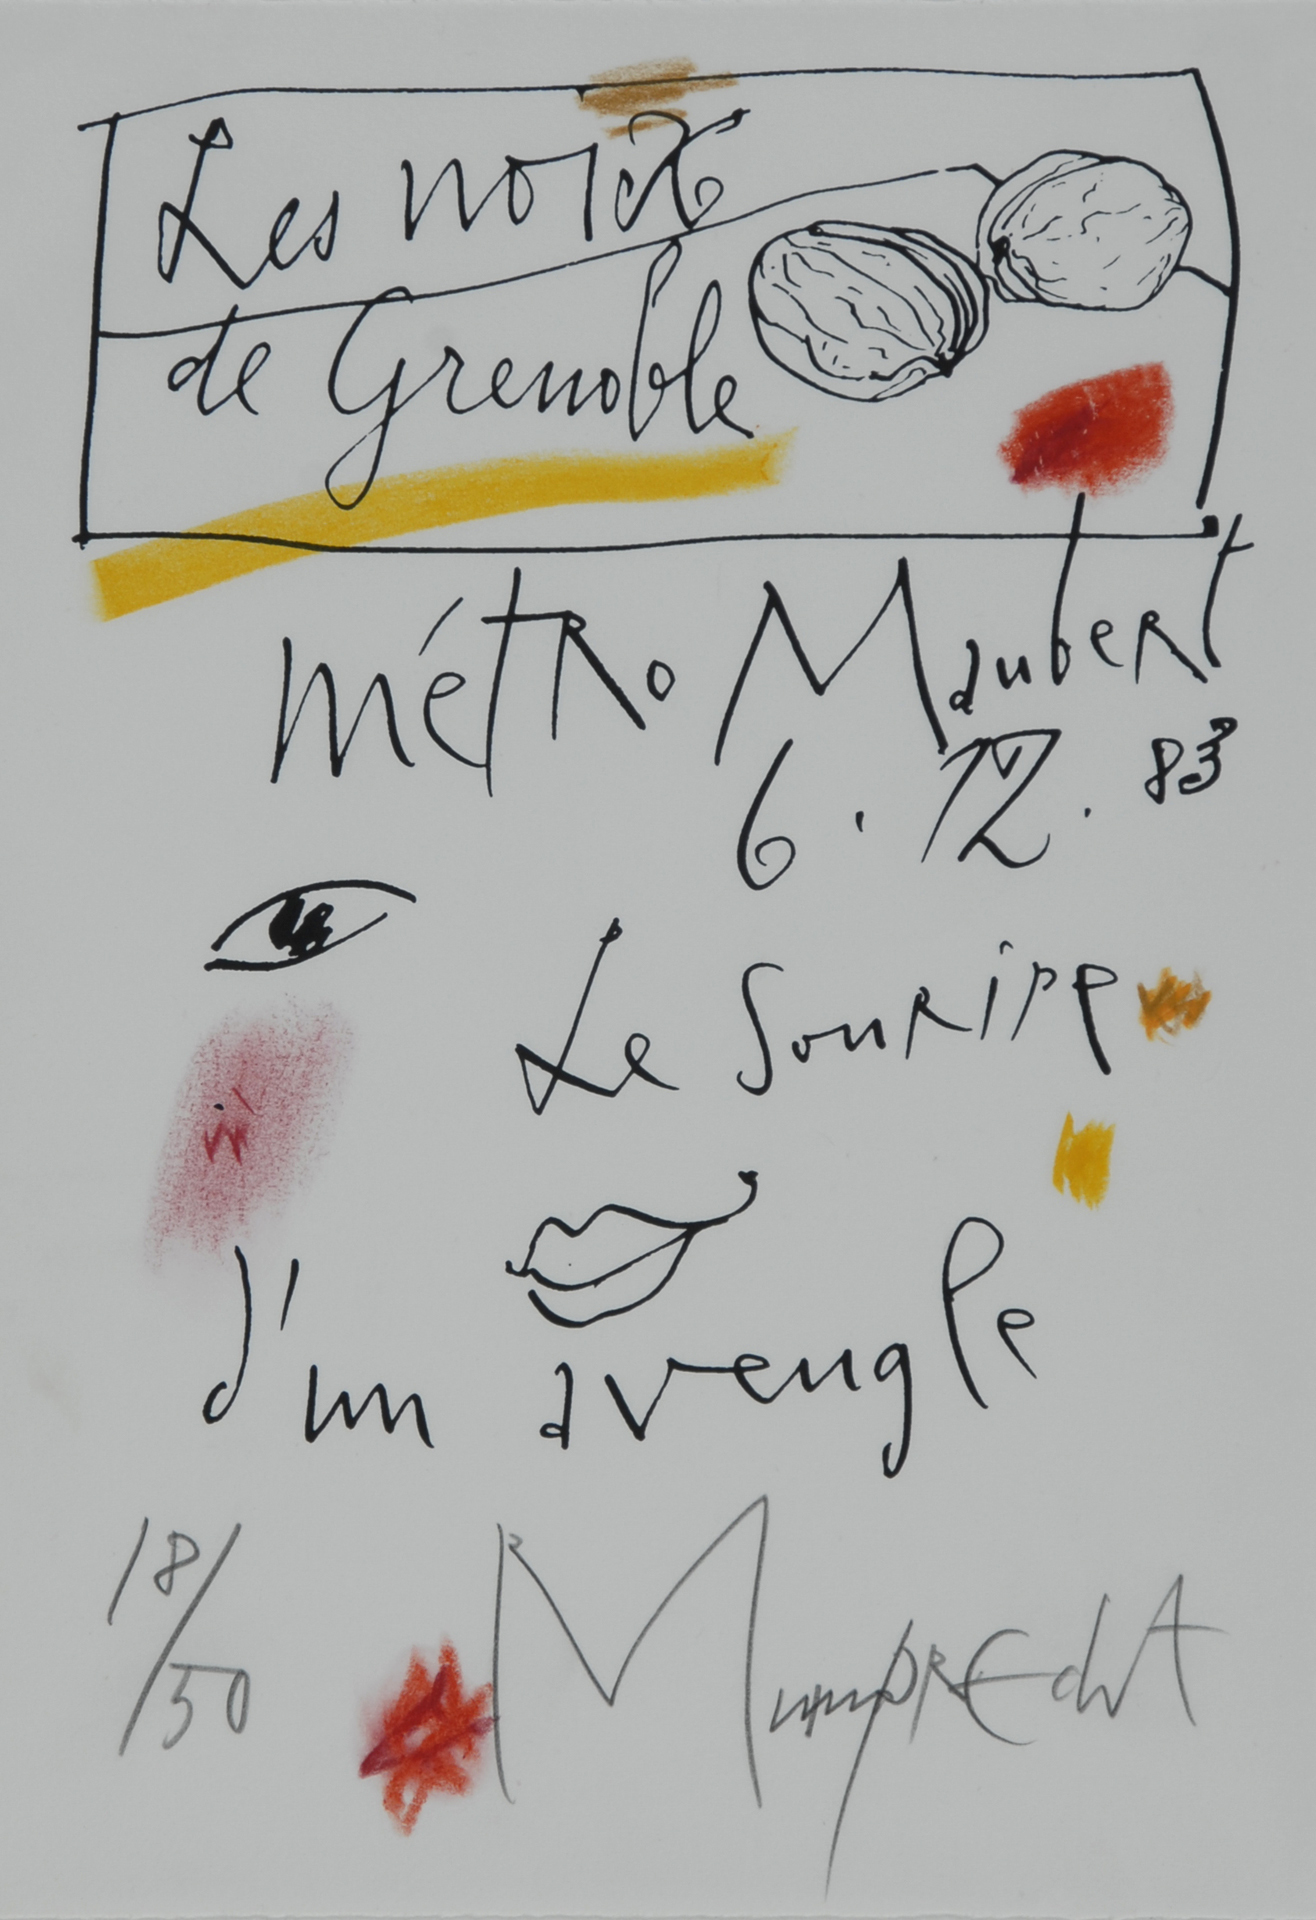 Les noix
de Grenoble
Métro Maubert
6.12.83
Le Sourire
d'un aveugle
18/50
MumpREchT